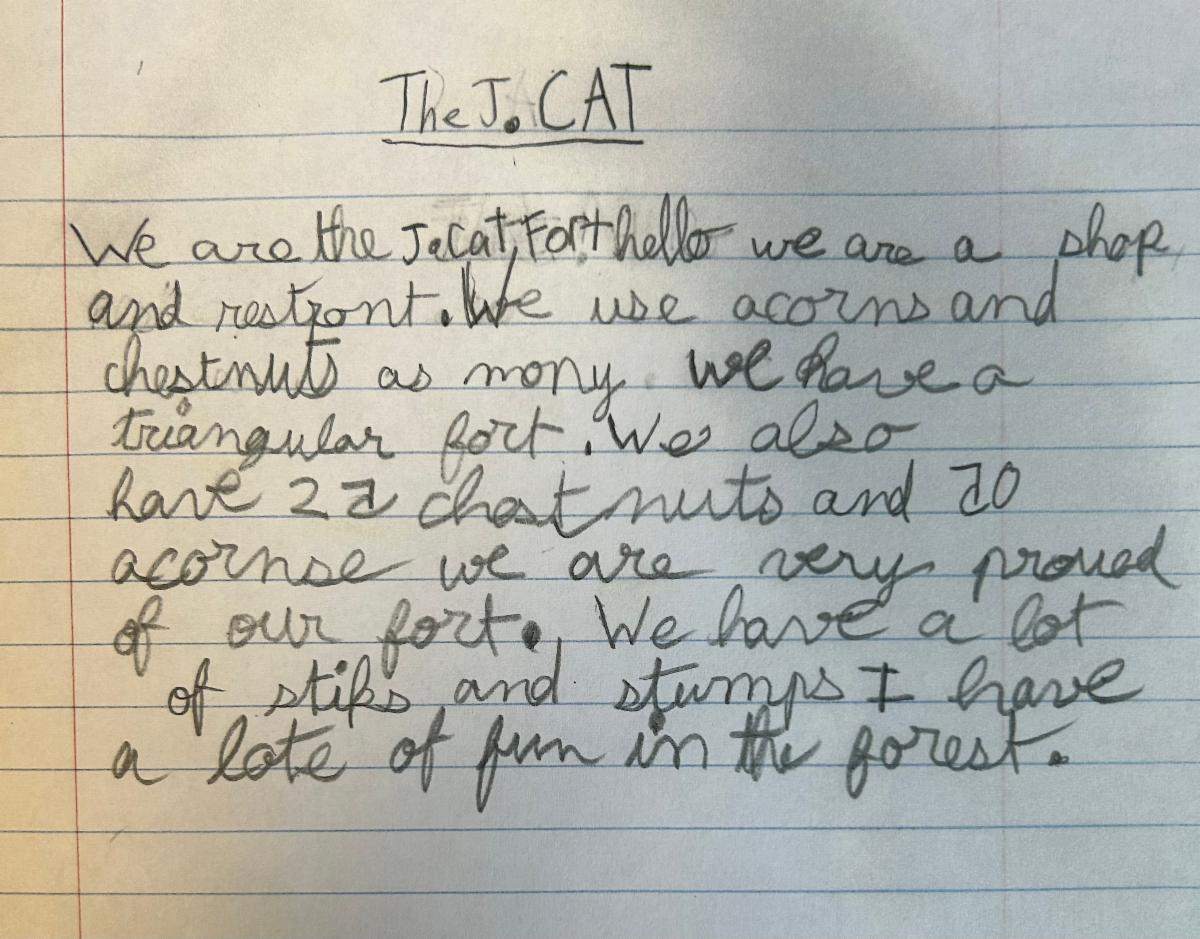 The J. CAT
We are the J. Cat, Fort hello we are a shop
and restront. We use acorns and
chestnuts as mony we have a
triangular fort. We also
have 22 chestnuts and 70
acornse we are very proued
of our fort. We have a lot
of stiks and stumps I have
a lote of fun in the forest.